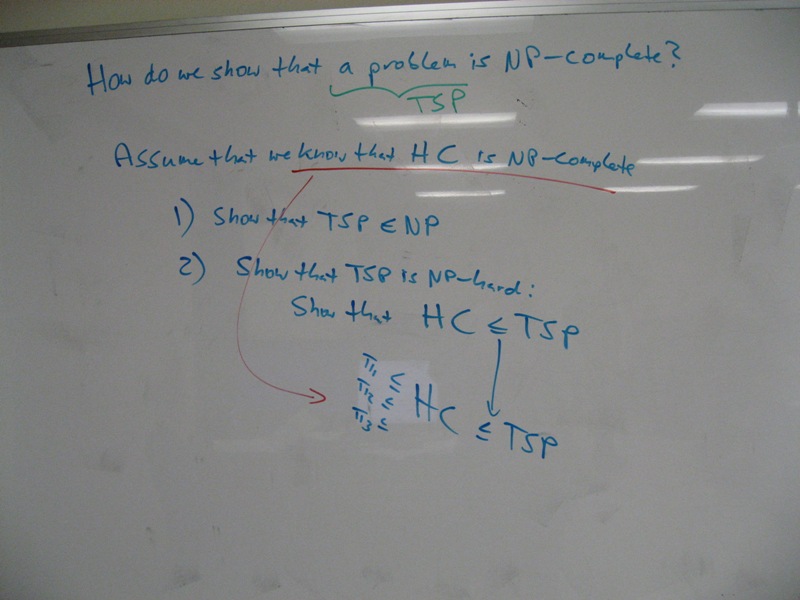 How do we show that a problem is NP-complete?
TSP
Assume that we know that HC is NP-complete
1) Show that TSP ∈ NP
2) Show that TSP is NP-hard:
Show that HC ≤ TSP
Π1 ≤
Π2 ≤ HC ≤ TSP
Π3 ≤